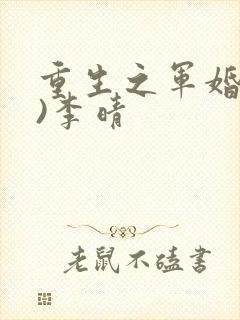 重生之军婚
)李晴
老鼠不嗑书